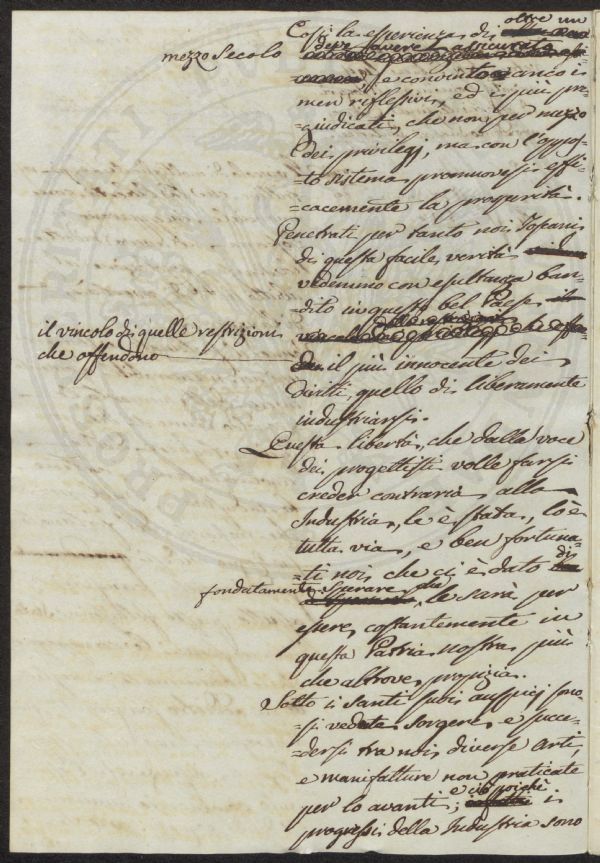 Così la esperienza di oltre un
mezzo Secolo deve avere assicurato
e convinto anco i
men riflessivi, ed i più pre-
=giudicati, che non per mezzo
dei privilegj, ma con l'oppos-
to sistema promuovesi effi-
=cacemente la prosperità.
Penetrati per tanto noi Sopani
di questa facile verità
vedemmo con esultanza ban-
dito in questo bel Paese
il vincolo di quelle restrizioni
che offendono
il più innocente dei
Diritti, quello di liberamente
industriarsi.
Questa libertà, che dalle voce
dei progettisti volle farsi
creder contraria alla
Industria, le è stata, lo è
tutta via, e ben fortuna-
=ti noi che ci è dato di
fondatamente sperare che le sarà per
essere costantemente in
questa Patria nostra più
che altrove propizia.
Sotto i Santi suoi auspicj son-
=si vedute sorgere, e succe-
dersi tra noi diverse arti,
e manifatture non praticate
per lo avanti; e ciò poichè i
progressi della Industria sono